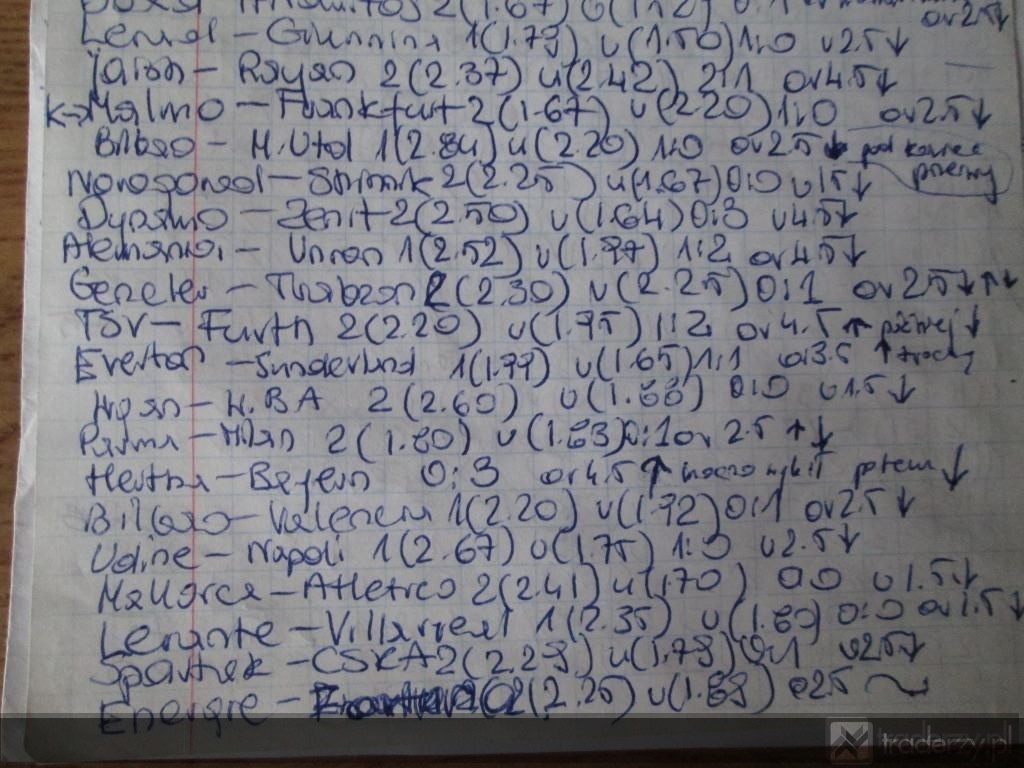 2(1.67) 0:1
ov 2.5↓
Lerual - Giunnina 1(1.79) u(1.50) 1:0 u2.5↓
Jaisn - Rayan 2(2.37) u(2.42) 2:1 ov4.5↓
K→ Malmo - Frankfurt 2(1.67) u(2.20) 1:0 ov2.5↓
Bilbao - M.Utd 1(2.84) u(2.20) 1:0 ov2.5↓ pod koniec
Novogorod - 2(2.25) u(1.67) 0:0 u1.5↓
Dynamo - Zenit 2(2.50) u(1.64) 0:3 u4.5↓
Alemania - Union 1(2.52) u(1.77) 1:2 ov4.5↓
Gencler - Trabzon 2(2.30) u(2.25) 0:1 ov2.5↓↑↓
TSV - Furth 2(2.20) u(1.75) 1:2 ov4.5↑ później ↓
Everton - Sunderland 1(1.77) u(1.65) 1:1 ov3.5 ↑ trochę
Wigan - W.BA 2(2.60) u(1.68) 0:0 u1.5↓
Parma - Milan 2(1.80) u(1.83) 0:1 ov 2.5 ↑↓
Hertha - Bayern 0:3 ov4.5 ↑ mocno wybił potem ↓
Bilbao - Valencia 1(2.20) u(1.92) 0:1 ov2.5↓
Udine - Napoli 1(2.67) u(1.75) 1:0 u2.5↓
Mallorca - Atletico 2(2.41) u(1.70) 0:0 u1.5↓
Levante - Villarreal 1(2.35) u(1.80) 0:0 ov1.5↓
Spartak - CSKA 2(2.29) u(1.79) 0:1 u2.5↓
Energie - 2(2.25) u(1.89) o2.5 ~
tradarzy.pl